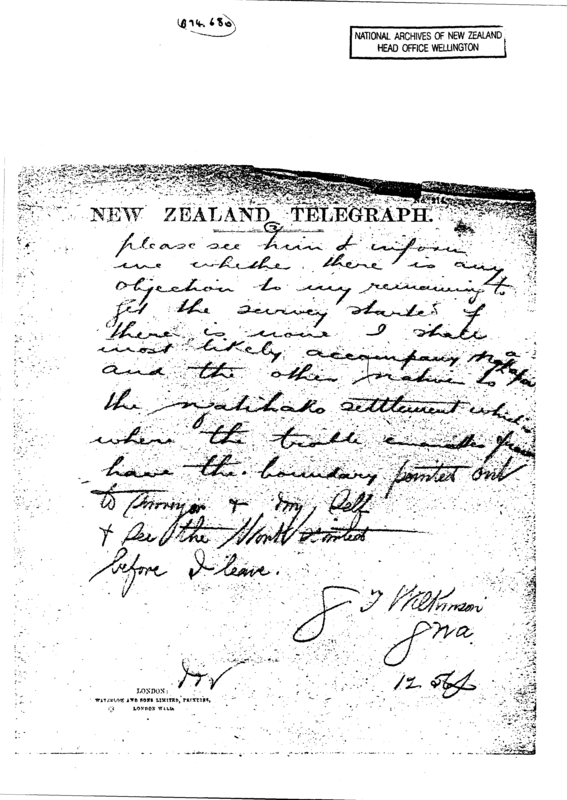 874.680
NATIONAL ARCHIVES OF NEW ZEALAND
HEAD OFFICE WELLINGTON
NEW ZEALAND TELEGRAPH.
please see him & inform
me whether there is any
objection to my remaining to
get the survey started if
there is none I shall
most likely accompany
and the other natives to
the Ngatihako settlement which is
where the trouble from
have the boundary pointed out
to Surveyor & my self
& see the Work started
before I leave.
G T Wilkinson
12
LONDON:
WATERLOW AND SONS LIMITED, PRINTERS,
LONDON WALL.